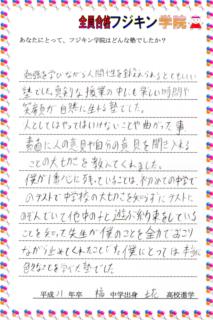 全員合格フジキン学院
あなたにとって、フジキン学院はどんな塾でしたか？
勉強を学びながら人間性を鍛えられるとてもいい
塾でした。真剣な授業の中にも楽しい時間や
笑顔が自然に生れる塾でした。
人としてはやってはいけないことや曲がった事、
素直に人の意見や自分の意見を聞き入れる
ことの大切さを教えてくれました。
僕が1番心に残っていることは、初めての中学で
のテストで中学校の大切さを知らずにテストに
のぞんでいて他中の子と遊ぶ約束をしている
ことを知って先生が僕のことを全力でおこり
ながら止めてくれたことです。僕にとっては本当に
自分をささえてくれる塾でした
平成11年卒 中学出身 高校進学